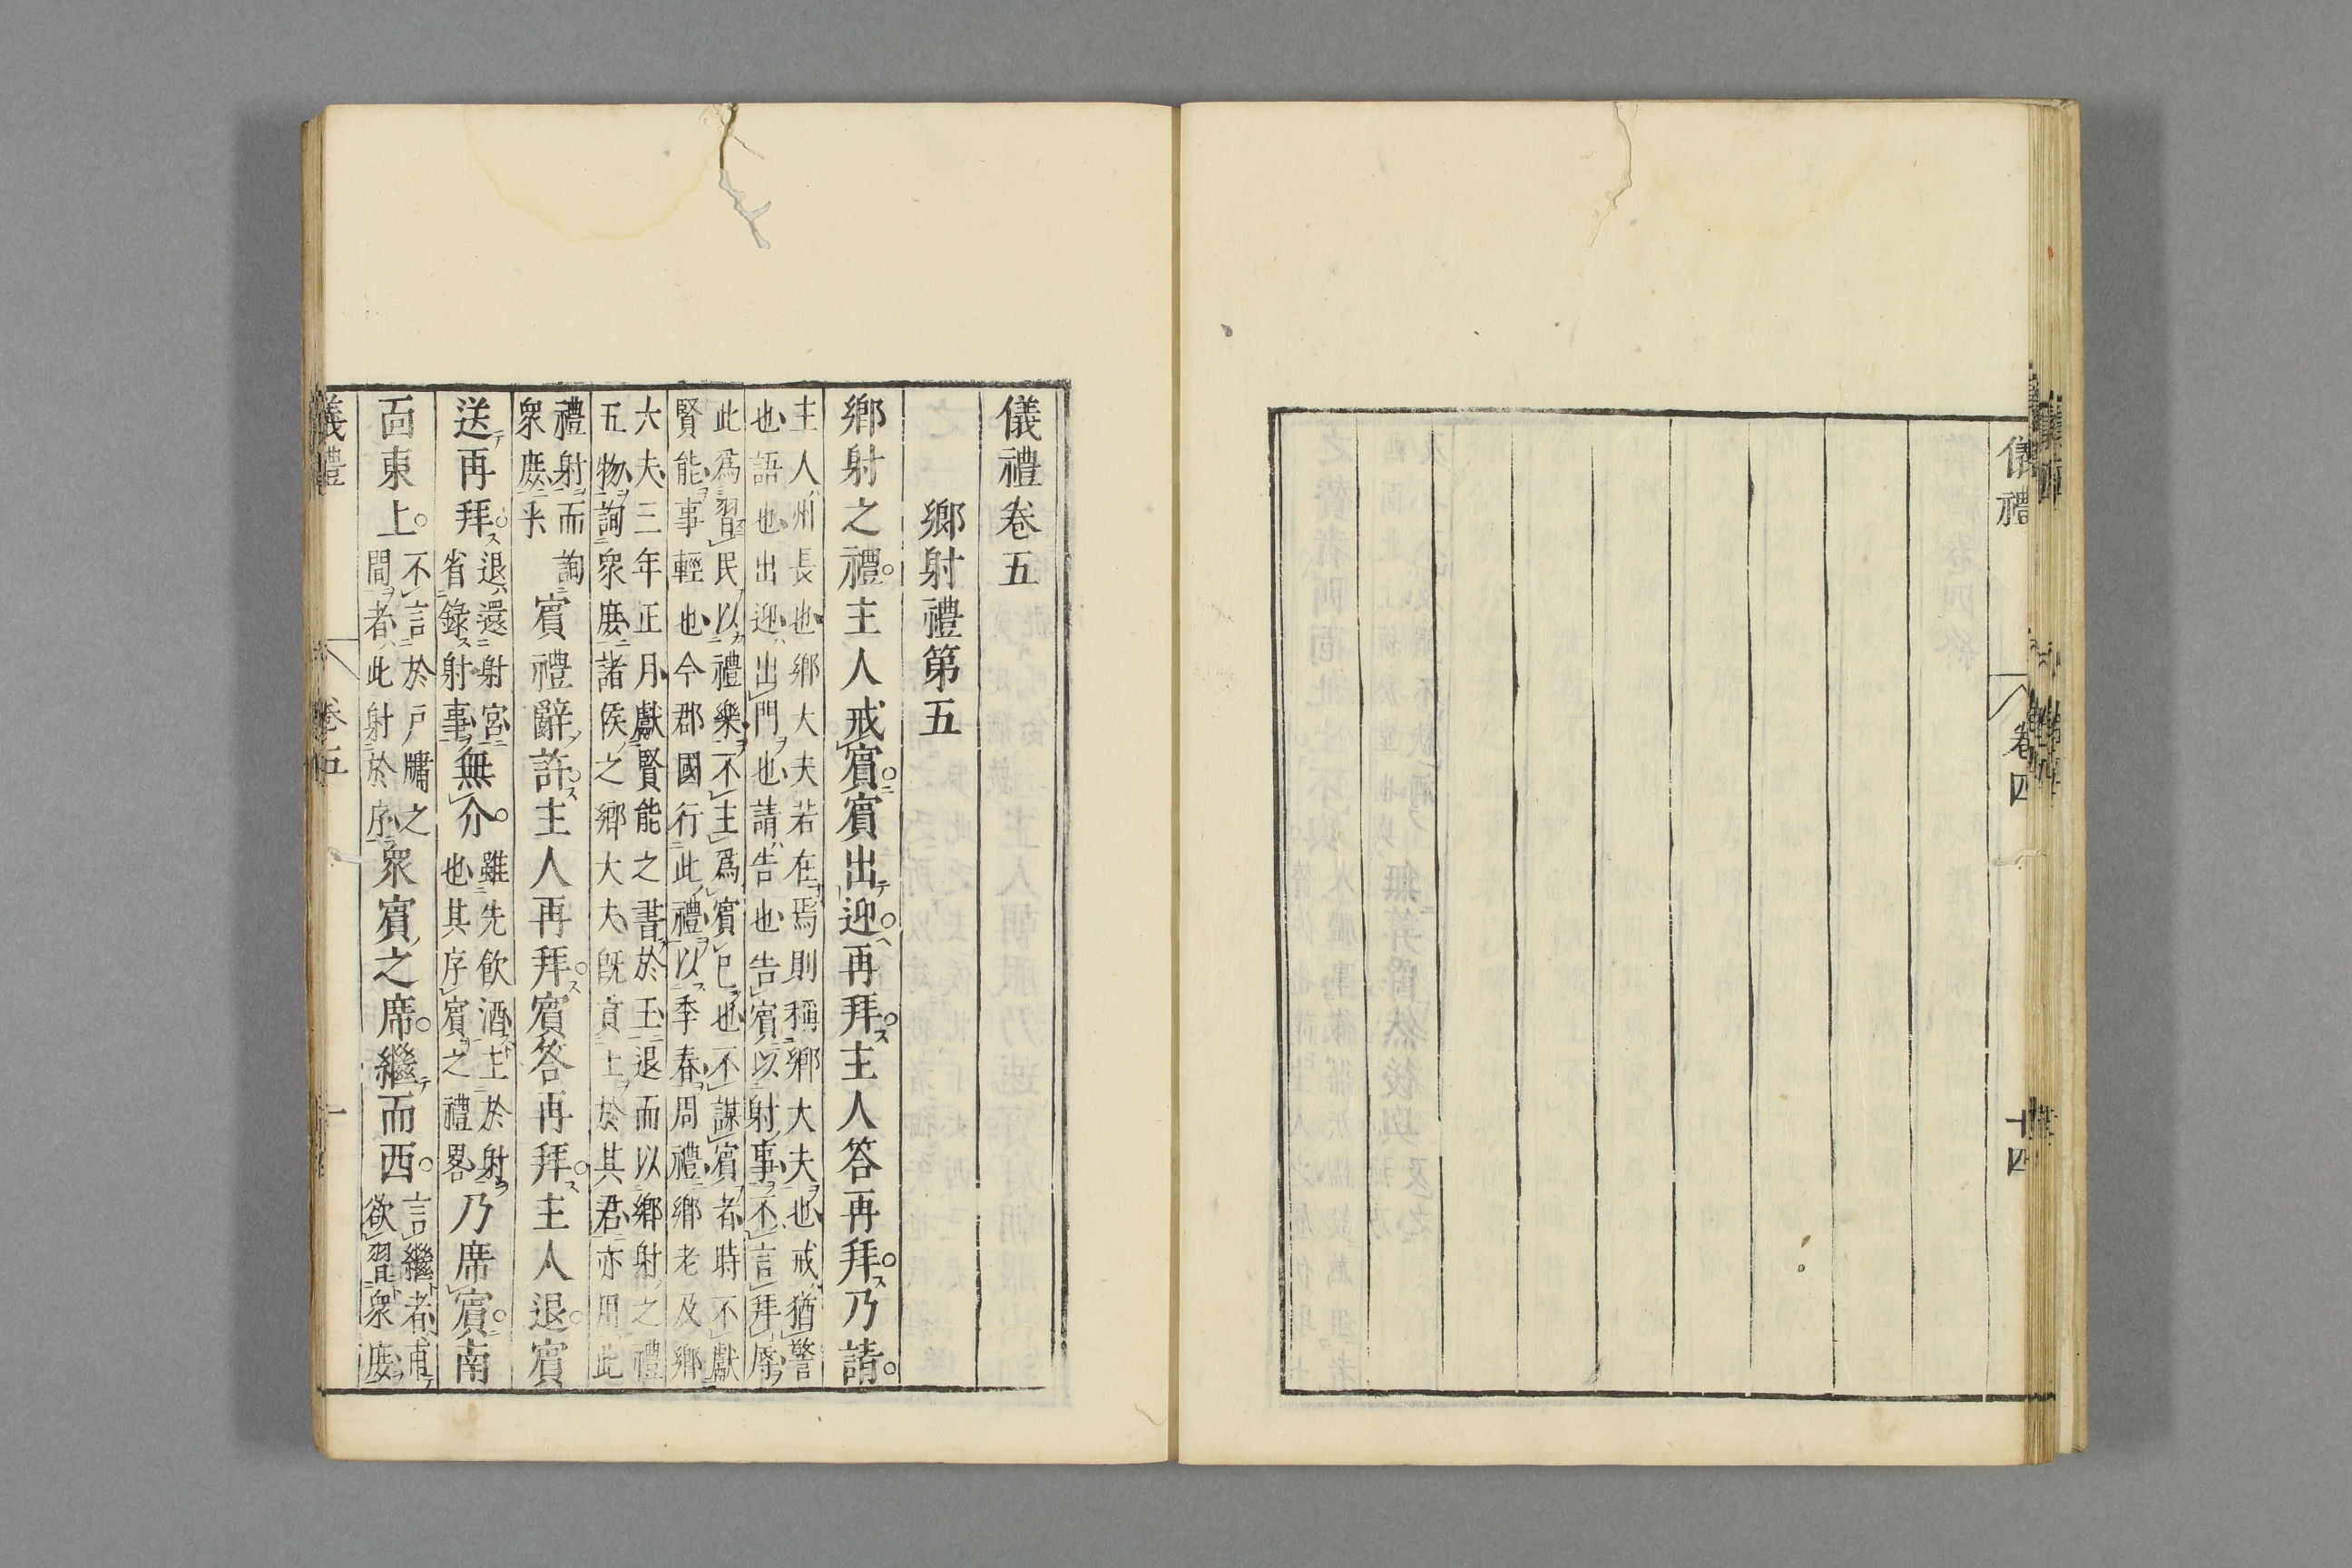 儀禮
卷四
十四
儀禮卷五
鄉射禮第五
鄉射之禮。主人戒賓。賓出迎。再拜。主人答再拜。乃請。
主人州長也鄉大夫若在焉則稱鄉大夫也戒猶警
也語也出迎出門也請告也告賓以射事不言拜辱
此爲習民以禮樂不主爲賓已也不謀賓者時不獻
賢能事輕也今郡國行此禮以季春周禮鄉老及鄉
大夫三年正月獻賢能之書於王退而以鄉射之禮
五物詢衆庶諸侯之鄉大夫旣貢士於其君亦用此
禮射而詢
衆庶乎
賓禮辭許。主人再拜。賓答再拜。主人退。賓
送再拜。
退還射宮
省錄射事
無介。
雖先飲酒主於射
也其序賓之禮畧
乃席賓。南
面東上。
不言於戶牖之
間者此射於序
衆賓之席。繼而西。
言繼者甫
欲習衆庶
儀禮
卷五
一